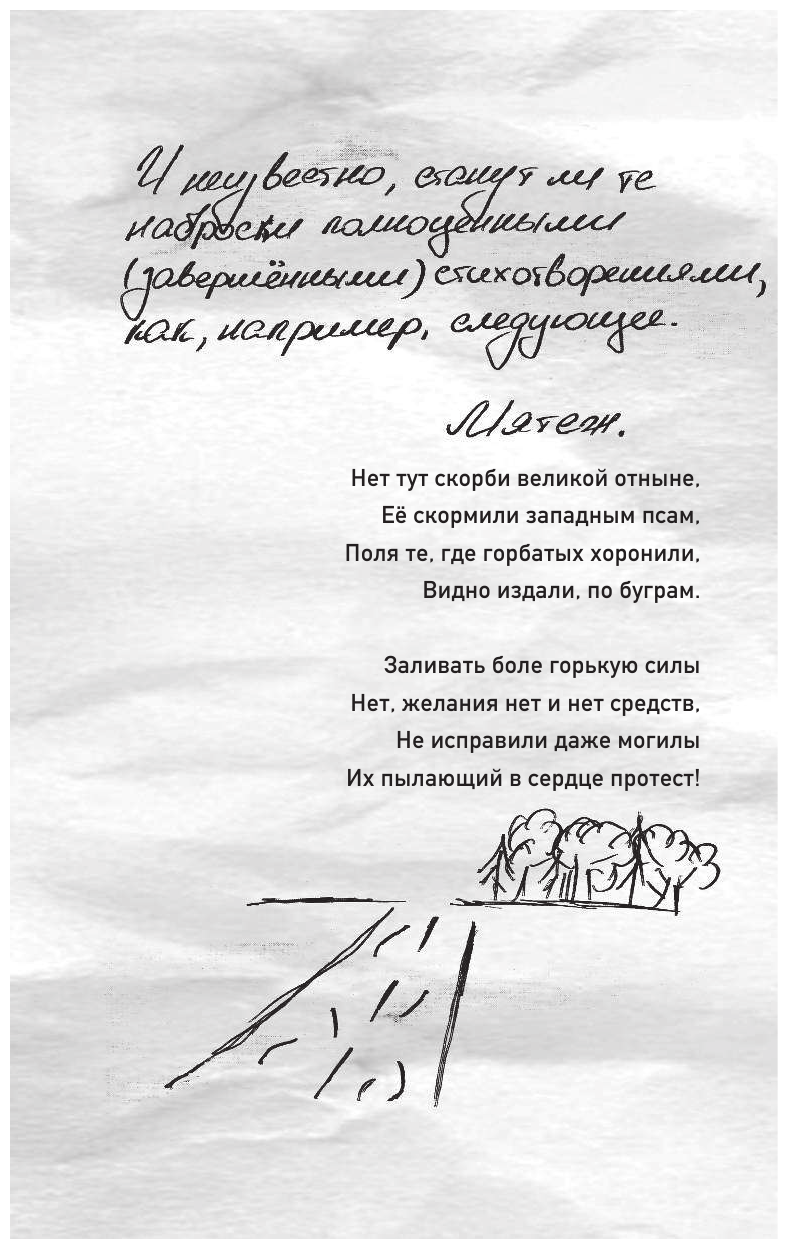 И неизвестно, станут ли те
наброски полноценными
(завершёнными) стихотворениями,
как, например, следующее.
Мятеж.
Нет тут скорби великой отныне,
Её скормили западным псам,
Поля те, где горбатых хоронили,
Видно издали, по буграм.
Заливать боле горькую силы
Нет, желания нет и нет средств,
Не исправили даже могилы
Их пылающий в сердце протест!